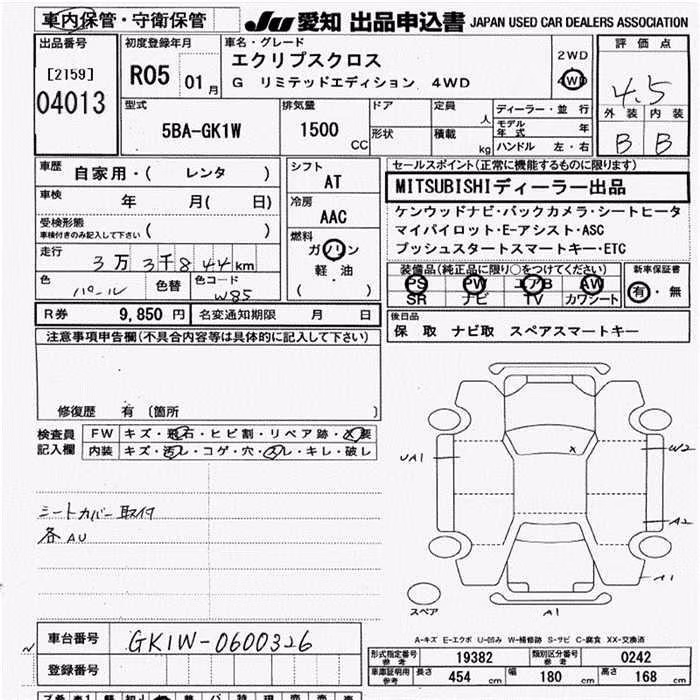 車内保管・守衛保管
JU 愛知 出品申込書 JAPAN USED CAR DEALERS ASSOCIATION
出品番号
[2159]
04013
初度登録年月
R05 01 月
車名・グレード
エクリプスクロス
G リミテッドエディション 4WD
2WD
4WD
評価点
4.5
外装 内装
B B
型式
5BA-GK1W
排気量
1500 CC
ドア
形状
定員 人
積載 kg
ディーラー・並行
モデル年式 年
ハンドル 左・右
車歴 自家用・( レンタ )
車検 年 月( 日)
受検形態
車検付きのみ記入して下さい ( )
走行 3万3千844km
色 パール
色替
色コード W85
シフト
AT
冷房
AAC
燃料
ガソリン
軽・油
( )
セールスポイント(正常に機能するものに限ります)
MITSUBISHIディーラー出品
ケンウッドナビ・バックカメラ・シートヒータ
マイパイロット・E-アシスト・ASC
プッシュスタートスマートキー・ETC
装備品(純正品に限り○をつけてください)
PS PW エアB AW
SR ナビ TV カワシート
新車保証書
有・無
R券 9,850 円
名変通知期限 月 日
後日品
保 取 ナビ取 スペアスマートキー
注意事項申告欄(不具合内容等は具体的に記入して下さい)
修復歴 有 〔箇所 〕
検査員記入欄
FW キズ・飛石・ヒビ割・リペア跡・×要
内装 キズ・汚レ・コゲ・穴・スレ・キレ・破レ
シートカバー取付
各AU
UA1
×
W2
A2
A1
A1
スペア
A-キズ E-エクボ U-凹み W-補修跡 S-サビ C-腐食 XX-交換済
車台番号 GK1W-0600326
登録番号
形式指定番号 参考 19382
類別区分番号 参考 0242
車庫証明用 参考 長さ 454 cm 幅 180 cm 高さ 168 cm